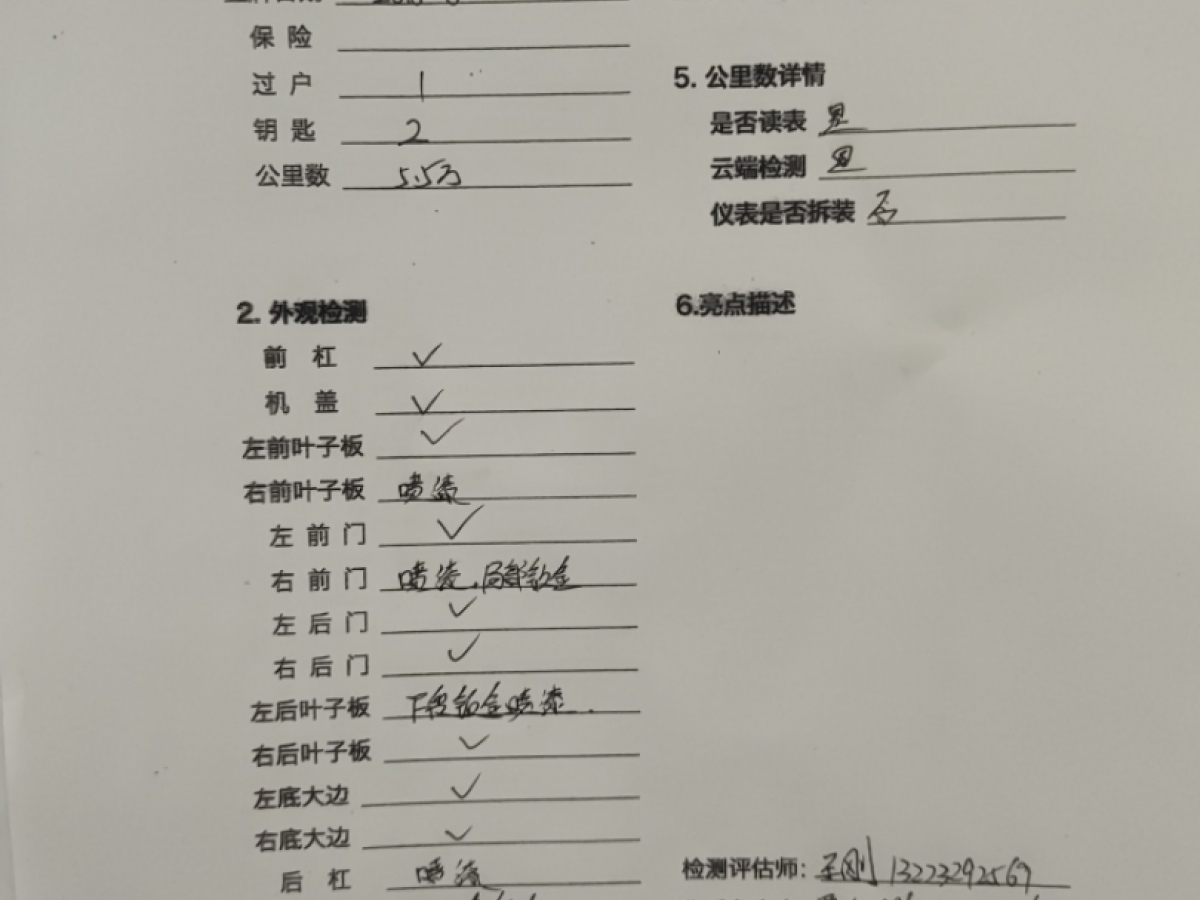 保险
过户 1
钥匙 2
公里数 5.5万
2. 外观检测
前杠 ✓
机盖 ✓
左前叶子板 ✓
右前叶子板 喷漆
左前门 ✓
右前门 喷漆,局部钣金
左后门 ✓
右后门 ✓
左后叶子板 下段钣金喷漆.
右后叶子板 ✓
左底大边 ✓
右底大边 ✓
后杠 喷漆
5. 公里数详情
是否读表 是
云端检测 是
仪表是否拆装 否
6.亮点描述
检测评估师: 王刚 13223292569